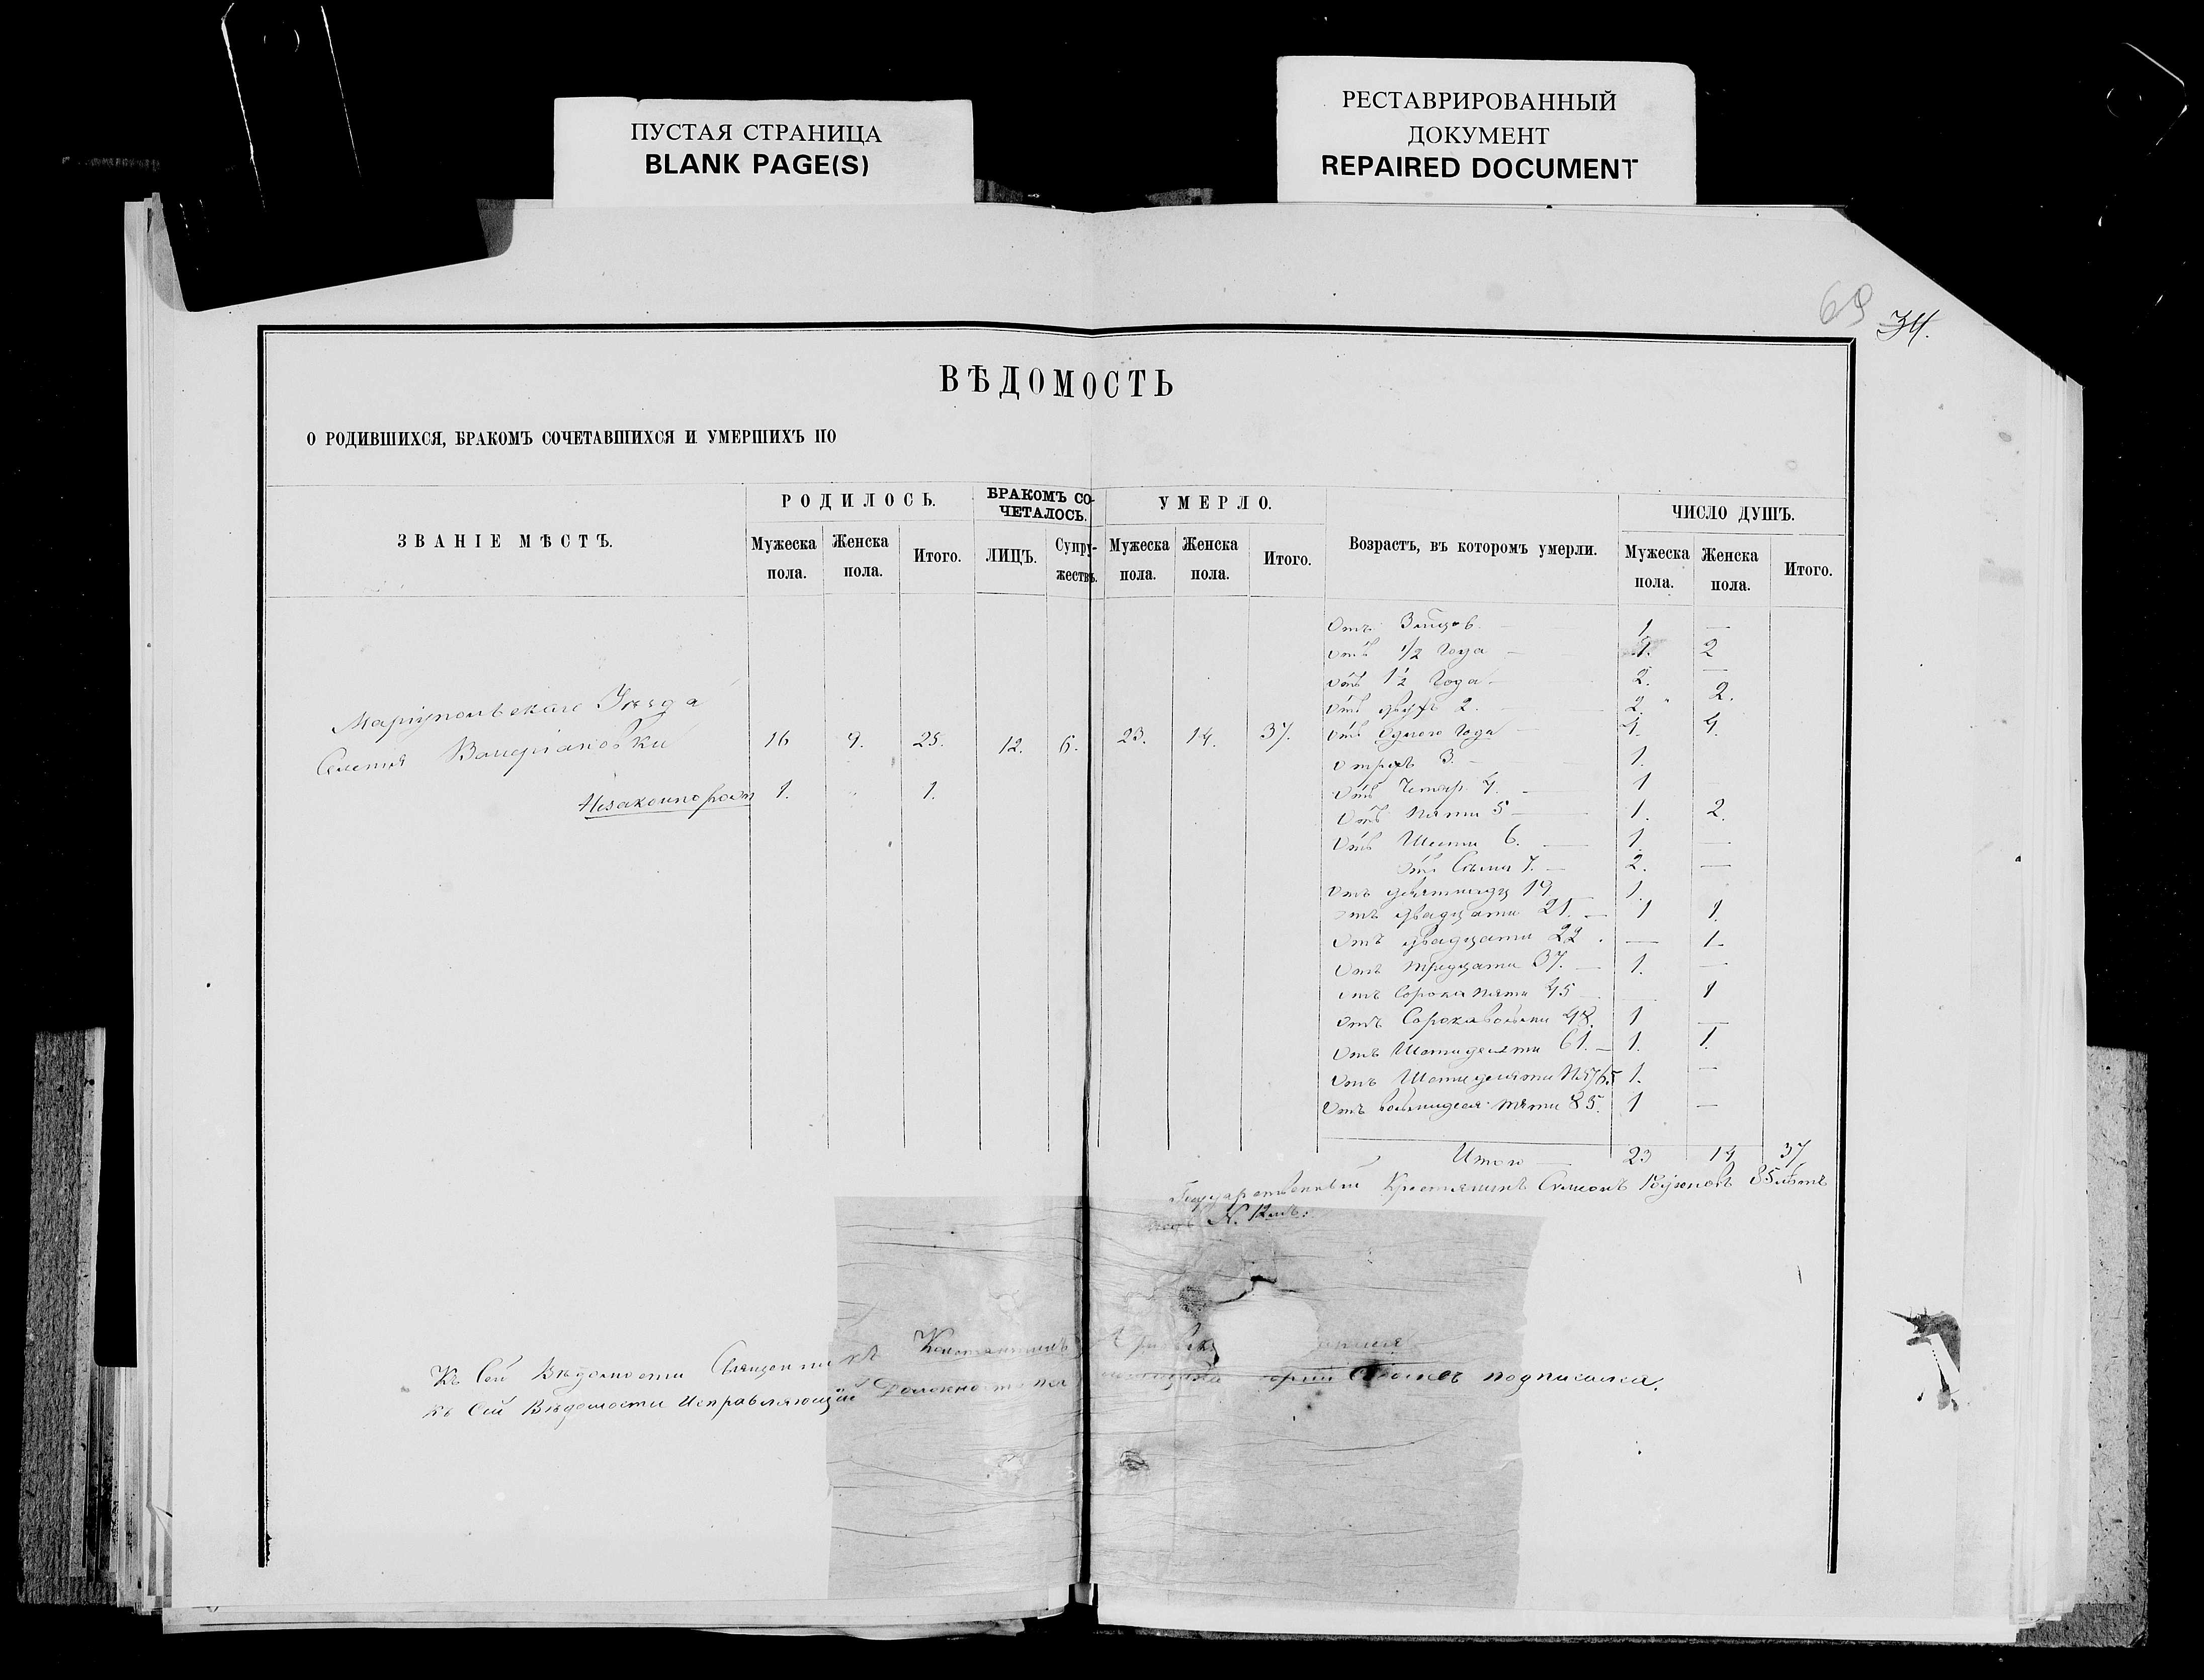 ПУСТАЯ СТРАНИЦА
BLANK PAGE(S)
РЕСТАВРИРОВАННЫЙ
ДОКУМЕНТ
REPAIRED DOCUMENT
69 34.
ВѢДОМОСТЬ
О РОДИВШИХСЯ, БРАКОМЪ СОЧЕТАВШИХСЯ И УМЕРШИХЪ ПО
ЗВАНІЕ МѢСТЪ.
РОДИЛОСЬ.
Мужеска пола.
Женска пола.
Итого.
БРАКОМЪ СО-
ЧЕТАЛОСЬ.
ЛИЦЪ.
Супру-
жествъ.
УМЕРЛО.
Мужеска пола.
Женска пола.
Итого.
Возрастъ, въ которомъ умерли.
ЧИСЛО ДУШЪ.
Мужеска пола.
Женска пола.
Итого.
Маріупольскаго Уѣзда
Селенія Валеріановки 16 9. 25. 12. 6. 23. 14. 37.
Незаконнорожд 1. " 1.
Отъ 1 —
Отъ 1/2 Года — 2
Отъ 1 1/2 Года — 2. —
Отъ двухъ 2. — 2. 2.
Отъ Одного Года — 4. 4.
Отрехъ 3. — 1.
Отъ Четыр 4. — 1 —
Отъ Пяти 5 — 1. 2.
Отъ Шести 6. — 1. —
Отъ Семи 7. — 2. —
Отъ девятнадц 19 1.
Отъ двадцати 21. — 1 1.
Отъ двадцати 22. — 1.
Отъ тридцати 37. — 1. —
Отъ Сорока пяти 45 — 1
Отъ Сорокавосьми 48. 1 —
Отъ Шестидесяти 61. — 1. 1.
Отъ Шестидесяти 65 1. —
Отъ восьмидеся пяти 85. 1 —
Итого — 23 14 37
Государственный Крестьянинъ Семенъ 85 лѣтъ
N. 12мъ.
Къ Сей Вѣдомости Священникъ Константинъ
къ Сей Вѣдомости Исправляющій Должность подписался.